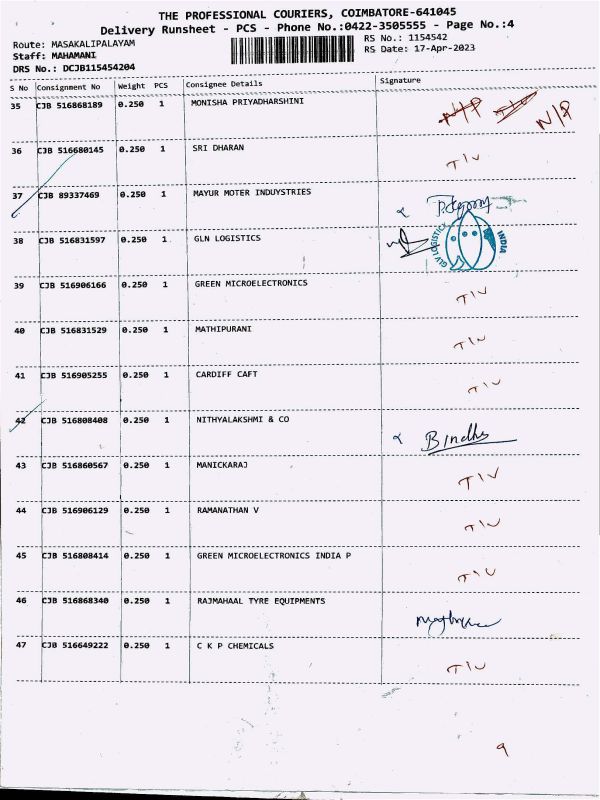 THE PROFESSIONAL COURIERS, COIMBATORE-641045
Delivery Runsheet - PCS - Phone No.:0422-3505555 - Page No.:4
Route: MASAKALIPALAYAM RS No.: 1154542
Staff: MAHAMANI RS Date: 17-Apr-2023
DRS No.: DCJB115454204
S No Consignment No Weight PCS Consignee Details Signature
35 CJB 516868189 0.250 1 MONISHA PRIYADHARSHINI N/P TIV N/P
36 CJB 516680145 0.250 1 SRI DHARAN TIV
37 CJB 89337469 0.250 1 MAYUR MOTER INDUYSTRIES
38 CJB 516831597 0.250 1 GLN LOGISTICS GLV LOGISTICS INDIA
39 CJB 516906166 0.250 1 GREEN MICROELECTRONICS TIV
40 CJB 516831529 0.250 1 MATHIPURANI TIV
41 CJB 516905255 0.250 1 CARDIFF CAFT TIV
42 CJB 516808408 0.250 1 NITHYALAKSHMI & CO Bindhu
43 CJB 516860567 0.250 1 MANICKARAJ TIV
44 CJB 516906129 0.250 1 RAMANATHAN V TIV
45 CJB 516808414 0.250 1 GREEN MICROELECTRONICS INDIA P TIV
46 CJB 516868340 0.250 1 RAJMAHAAL TYRE EQUIPMENTS
47 CJB 516649222 0.250 1 C K P CHEMICALS TIV
9